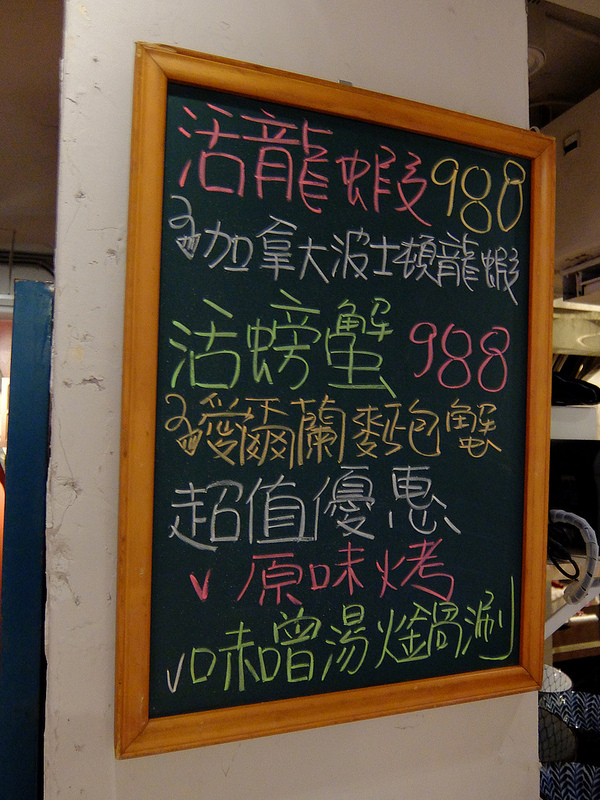 活龍蝦988
加拿大波士頓龍蝦
活螃蟹988
愛爾蘭麥包蟹
超值優惠
v原味烤
v味噌湯火鍋涮